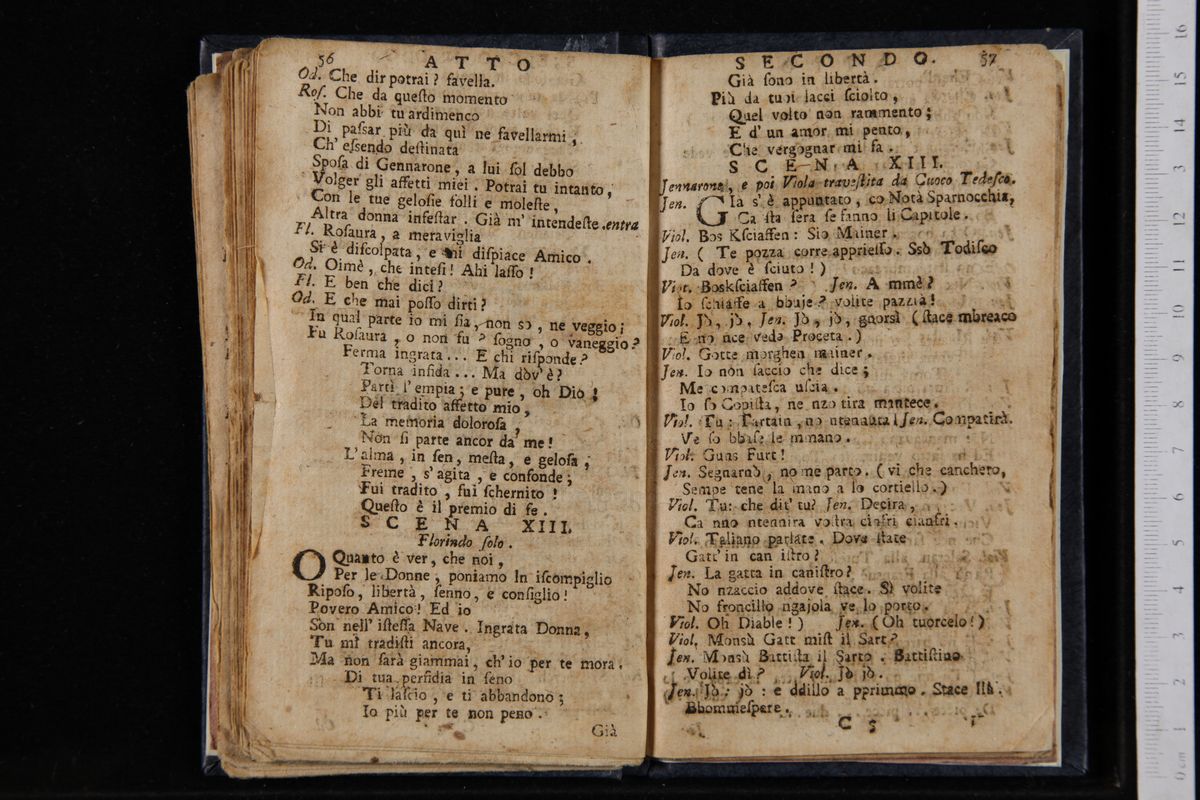 56 ATTO
Od. Che dir potrai? favella.
Ros. Che da questo momento
Non abbi tu ardimenco
Di passar più da quì ne favellarmi;
Ch' essendo destinata
Sposa di Gennarone, a lui sol debbo
Volger gli affetti miei. Potrai tu intanto,
Con le tue gelosie folli e moleste,
Altra donna infestar. Già m' intendeste. entra
Fl. Rosaura, a meraviglia
Si è discolpata, e mi dispiace Amico.
Od. Oimè, che intesi! Ahi lasso!
Fl. E ben che dici?
Od. E che mai posso dirti?
In qual parte io mi sia, non so, ne veggio;
Fu Rosaura, o non fu? sogno, o vaneggio?
Ferma ingrata... E chi risponde?
Torna infida... Ma dòv' è?
Parti l' empia; e pure, oh Dio!
Del tradito affetto mio,
La memoria dolorosa,
Non si parte ancor da me!
L' alma, in sen, mesta, e gelosa,
Freme, s' agita, e confonde;
Fui tradito, fui schernito!
Questo è il premio di fe.
SCENA XIII.
Florindo solo.
O Quanto è ver, che noi,
Per le Donne, poniamo In iscompiglio
Riposo, libertà, senno, e consiglio!
Povero Amico! Ed io
Son nell' istessa Nave. Ingrata Donna,
Tu mi tradisti ancora,
Ma non sarà giammai, ch' io per te mora.
Di tua perfidia in seno
Ti lascio, e ti abbandono;
Io più per te non peno.
Già
SECONDO. 57
Già sono in libertà.
Più da tuoi lacci sciolto,
Quel volto non rammento;
E d' un amor mi pento,
Che vergognar mi fa.
SCENA XIII.
Jennarone, e poi Viola travestita da Cuoco Tedesco.
Jen. GIa s' è appuntato, co Notà Sparnocchia,
Ca sta sera se fanno li Capitole.
Viol. Bos Ksciassen: Sio Mainer.
Jen. ( Te pozza corre appriesso. Ssò Todisco
Da dove è sciuto!)
Viol. Bosksciassen? Jen. A mmè?
Io schiaffe a bbuje? volite pazzia!
Viol. Jò, jò, Jen. Jò, jò, gnorsì (stace mbreaco
E no nce vede Proceta.)
Viol. Gotte morghen mainer.
Jen. Io non saccio che dice;
Me compatesca uscia.
Io so Copista, ne nzo tira mantece.
Viol. Tu: Tartain, no ntennuta! Jen. Compatirà.
Ve so bbase le mmano.
Viol. Guas Furt!
Jen. Segnarnò, no me parto. (vi che canchero,
Sempe tene la mano a lo cortiello.)
Viol. Tu: che dit' tu? Jen. Decira,
Ca nno ntennira vostra cianfri.
Viol. Taliano parlate. Dove state
Gatt' in can istro?
Jen. La gatta in canistro?
No nzaccio addove stace. Sì volite
No froncillo ngajola ve lo porto.
Viol. Oh Diable!) Jen. (Oh tuorcelo!)
Viol. Monsù Gatt mist il Sart?
Jen. Monsù Battista il Sarto. Battistino
Volite dì? Viol. Jò jò.
Jen. Jò, jò: e ddillo a pprimmo. Stace llà.
Bhommespere.
C 5